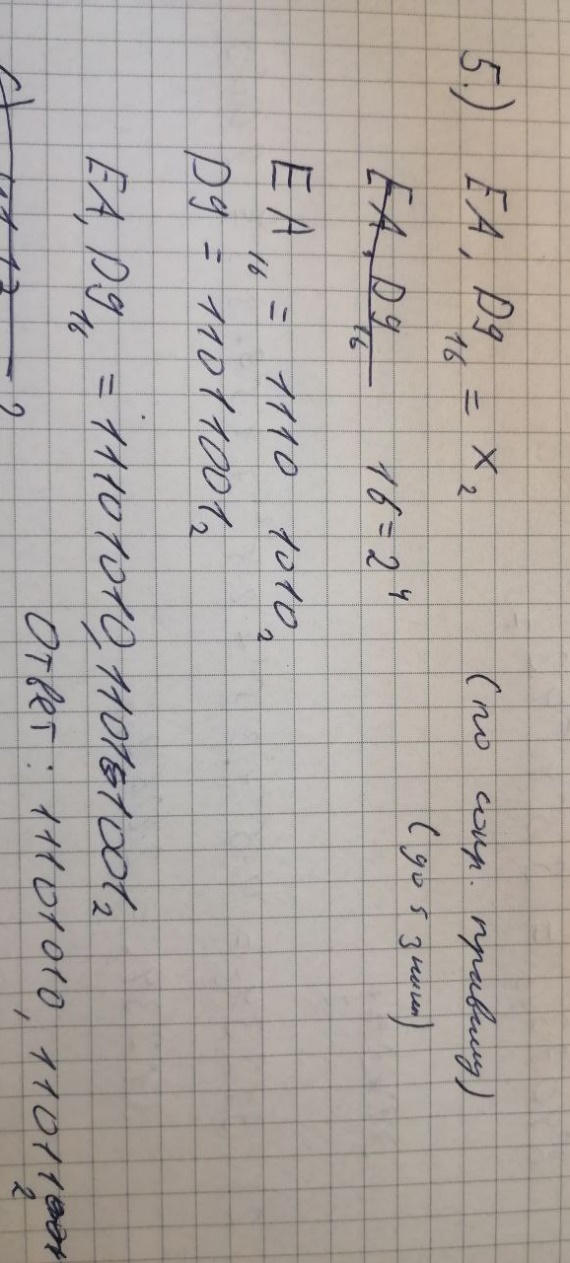 5.) EA,D9₁₆ = x₂ (по сокр. правилу)
(до 5 знаки)
EA,D9₁₆ 16=2⁴
EA₁₆ = 1110 1010₂
D9 = 11011001₂
EA,D9₁₆ = 11101010,11011001₂
Ответ: 11101010, 11011001₂